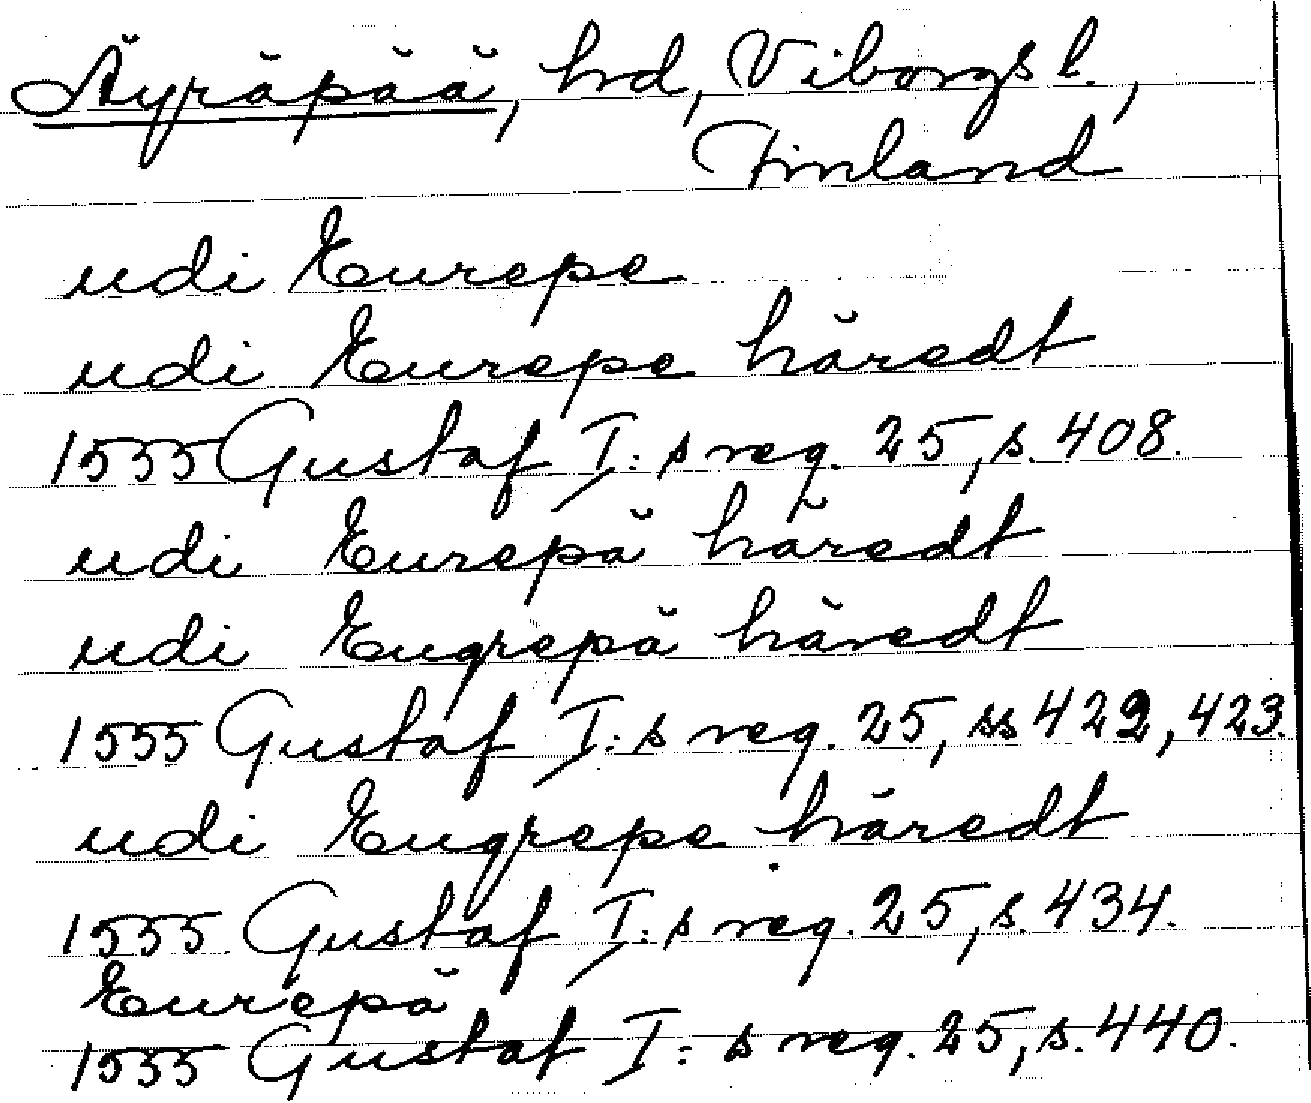 Äyräpää, hrd, Viborgs l.,
Finland
udi Eurepe
udi Eurepe häredt
1555 Gustaf I:s reg. 25, s. 408.
udi Eurepä häredt
udi Eugrepä häredt
1555 Gustaf I:s reg. 25, ss 422, 423.
udi Eugrepe häredt
1555 Gustaf I:s reg. 25, s. 434.
Eurepä
1555 Gustaf I:s reg. 25, s. 440.